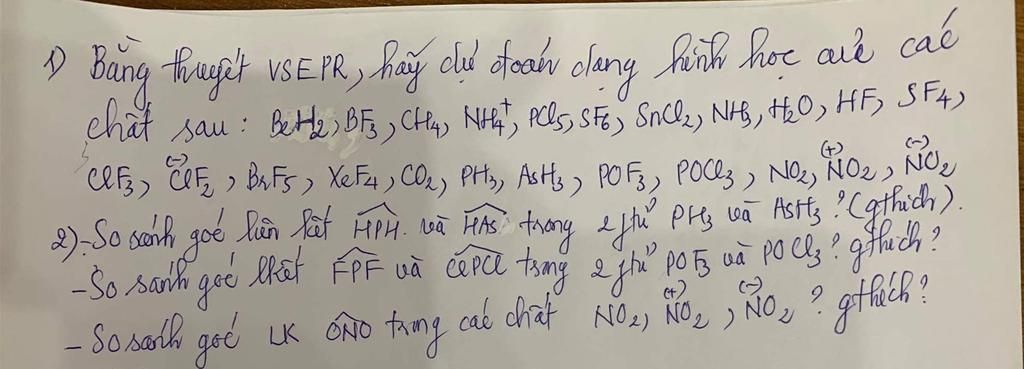 1) Bằng thuyết VSEPR, hãy dự đoán dạng hình học của các
chất sau: BeH2, BF3, CH4, NH4+, PCl5, SF6, SnCl2, NH3, H2O, HF, SF4,
ClF3, (-)ClF2, BrF5, XeF4, CO2, PH3, AsH3, POF3, POCl3, NO2, (+)NO2, (-)NO2
2) - So sánh góc liên kết HPH và HAs trong 2 ptử PH3 và AsH3? (gthích).
- So sánh góc lkết FPF và ClPCl trong 2 ptử POF3 và POCl3? gthích?
- So sánh góc LK ONO trong các chất NO2, (+)NO2, (-)NO2? gthích?